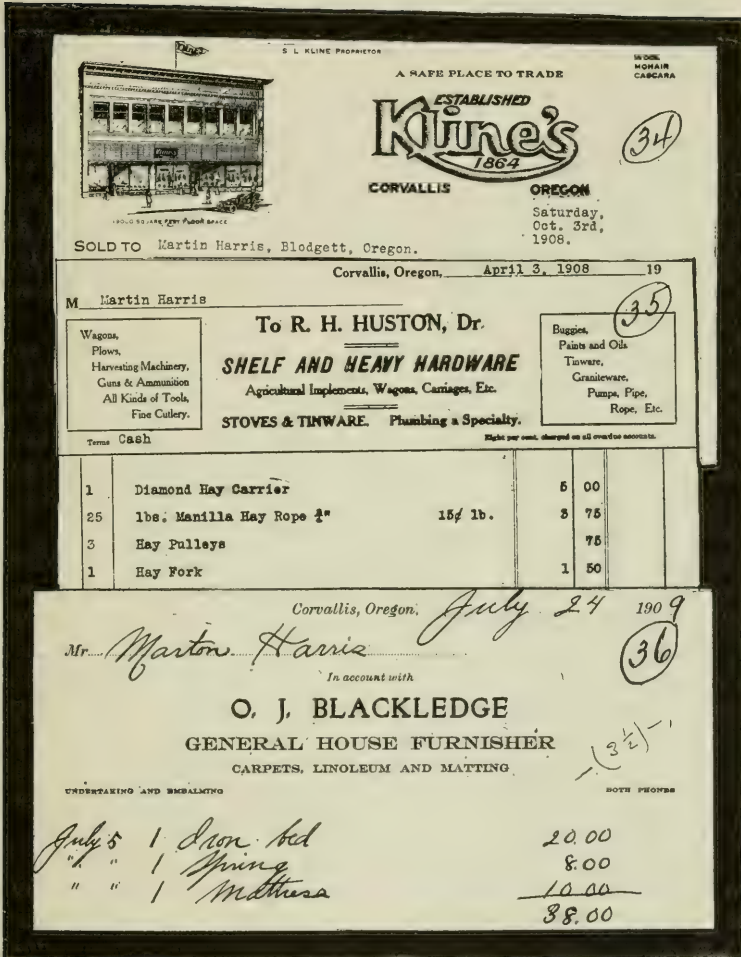 Kline's
S L KLINE PROPRIETOR
WOOL
MOHAIR
CASCARA
A SAFE PLACE TO TRADE
ESTABLISHED
Kline's
1864
34
CORVALLIS OREGON
SQUARE FEET FLOOR SPACE
Saturday,
Oct. 3rd,
1908.
SOLD TO Martin Harris, Blodgett, Oregon.
Corvallis, Oregon, April 3, 1908 19
M Martin Harris
35
To R. H. HUSTON, Dr.
Wagons,
Plows,
Harvesting Machinery,
Guns & Ammunition
All Kinds of Tools,
Fine Cutlery.
SHELF AND HEAVY HARDWARE
Agricultural Implements, Wagons, Carriages, Etc.
STOVES & TINWARE. Plumbing a Specialty.
Buggies,
Paints and Oils
Tinware,
Graniteware,
Pumps, Pipe,
Rope, Etc.
Terms Cash
Eight per cent. charged on all overdue accounts.
1 Diamond Hay Carrier 5 00
25 lbs. Manilla Hay Rope ¾" 15¢ lb. 3 75
3 Hay Pulleys 75
1 Hay Fork 1 50
Corvallis, Oregon, July 24 1909
Mr. Marton Harris
36
In account with
O. J. BLACKLEDGE
GENERAL HOUSE FURNISHER
(3½)
CARPETS, LINOLEUM AND MATTING
UNDERTAKING AND EMBALMING BOTH PHONES
July 5 1 Iron bed 20.00
" " 1 Spring 8.00
" " 1 Mattress 10.00
38.00